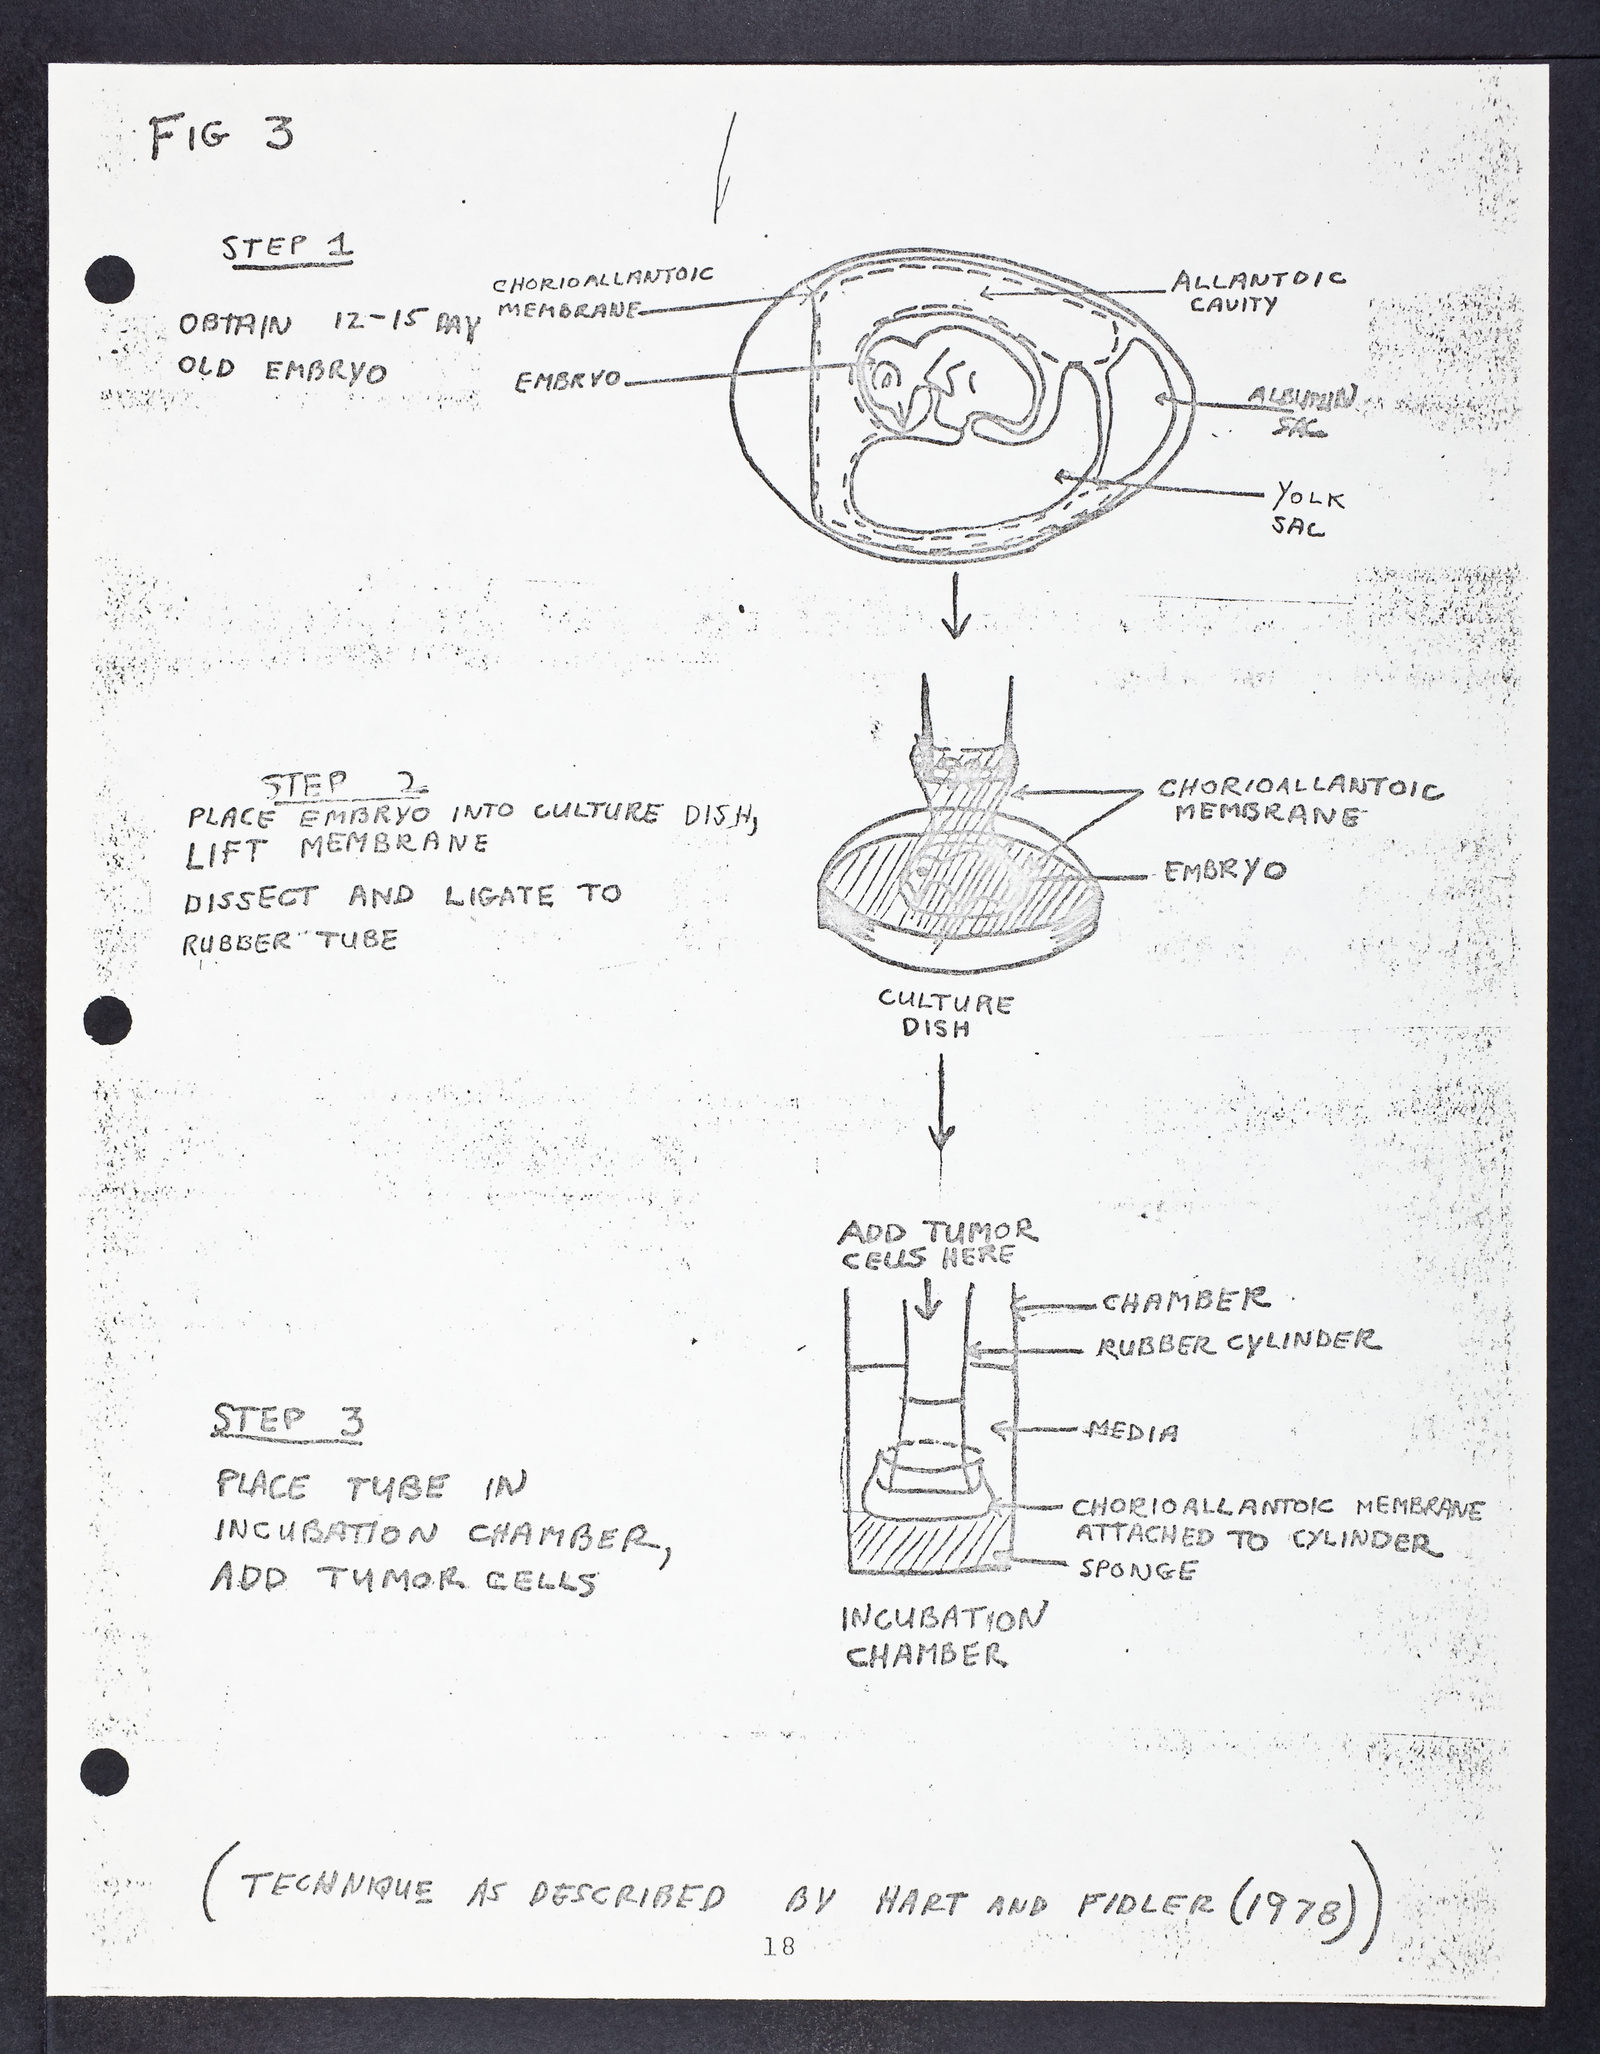 FIG 3
STEP 1
OBTAIN 12-15 DAY
OLD EMBRYO
CHORIOALLANTOIC
MEMBRANE
EMBRYO
ALLANTOIC
CAVITY
ALBUMIN
SAC
YOLK
SAC
STEP 2
PLACE EMBRYO INTO CULTURE DISH,
LIFT MEMBRANE
DISSECT AND LIGATE TO
RUBBER TUBE
CHORIOALLANTOIC
MEMBRANE
EMBRYO
CULTURE
DISH
ADD TUMOR
CELLS HERE
CHAMBER
RUBBER CYLINDER
MEDIA
CHORIOALLANTOIC MEMBRANE
ATTACHED TO CYLINDER
SPONGE
STEP 3
PLACE TUBE IN
INCUBATION CHAMBER,
ADD TUMOR CELLS
INCUBATION
CHAMBER
(TECHNIQUE AS DESCRIBED BY HART AND FIDLER (1978))
18